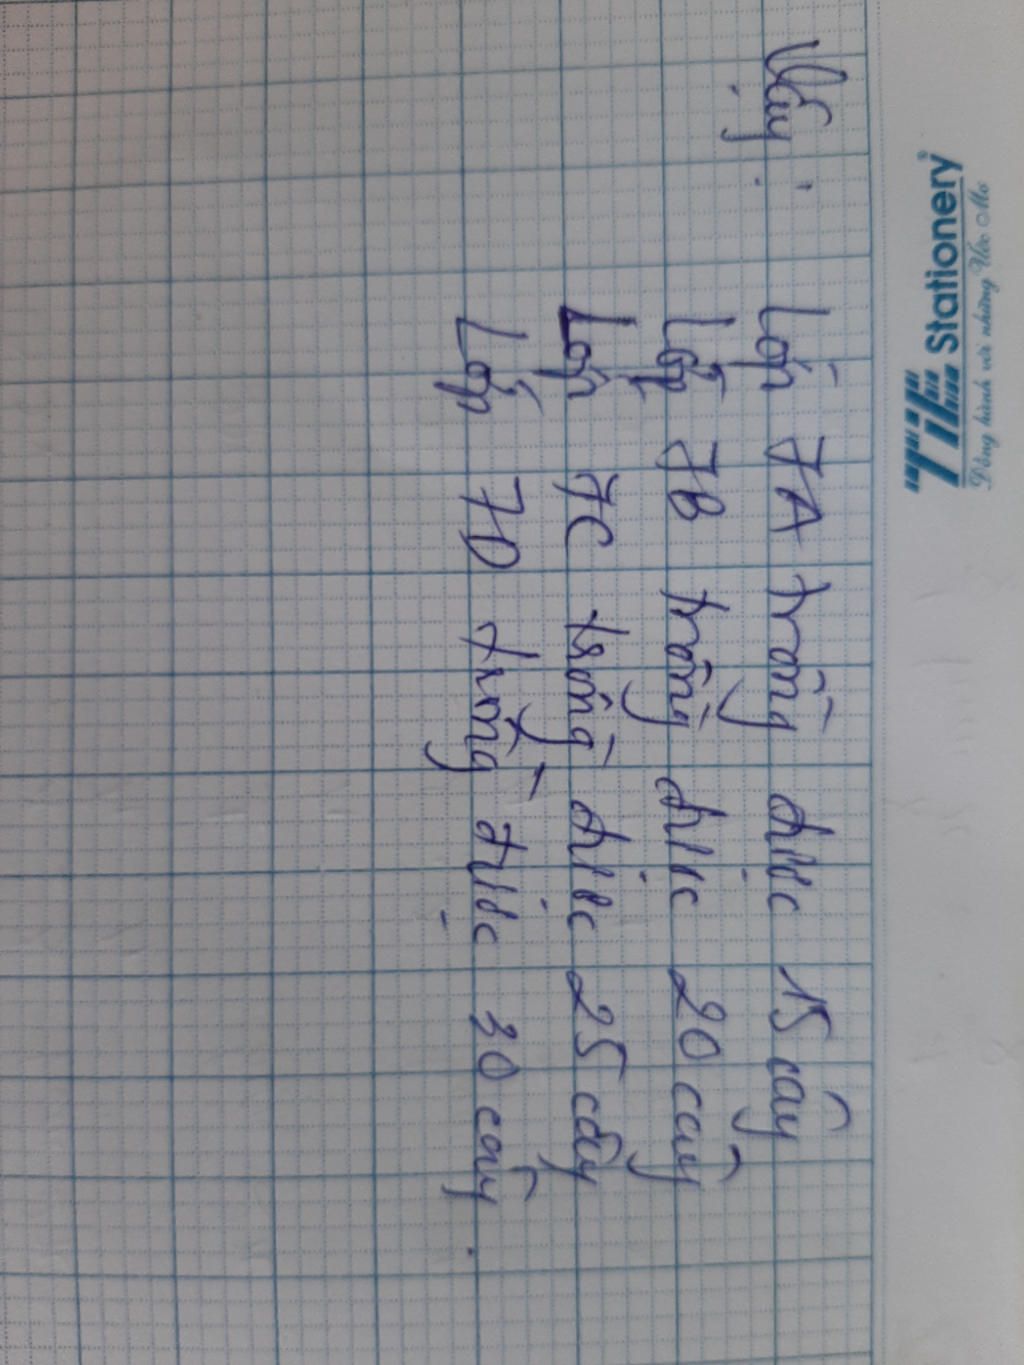 TiE Stationery®
Đồng hành với những Ước Mơ
Vậy : Lớp 7A trồng được 15 cây
Lớp 7B trồng được 20 cây
Lớp 7C trồng được 25 cây
Lớp 7D trồng được 30 cây.